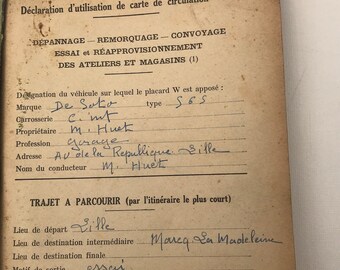 Déclaration d'utilisation de carte de circulation
DÉPANNAGE — REMORQUAGE — CONVOYAGE
ESSAI et RÉAPPROVISIONNEMENT
DES ATELIERS ET MAGASINS (1)
Désignation du véhicule sur lequel le placard W est apposé :
Marque De Soto type S6S
Carrosserie C. int
Propriétaire M. Huet
Profession garage
Adresse Av de la République Lille
Nom du conducteur M. Huet
TRAJET A PARCOURIR (par l'itinéraire le plus court)
Lieu de départ Lille
Lieu de destination intermédiaire Marcq La Madeleine
Lieu de destination finale
Motif de sortie essai